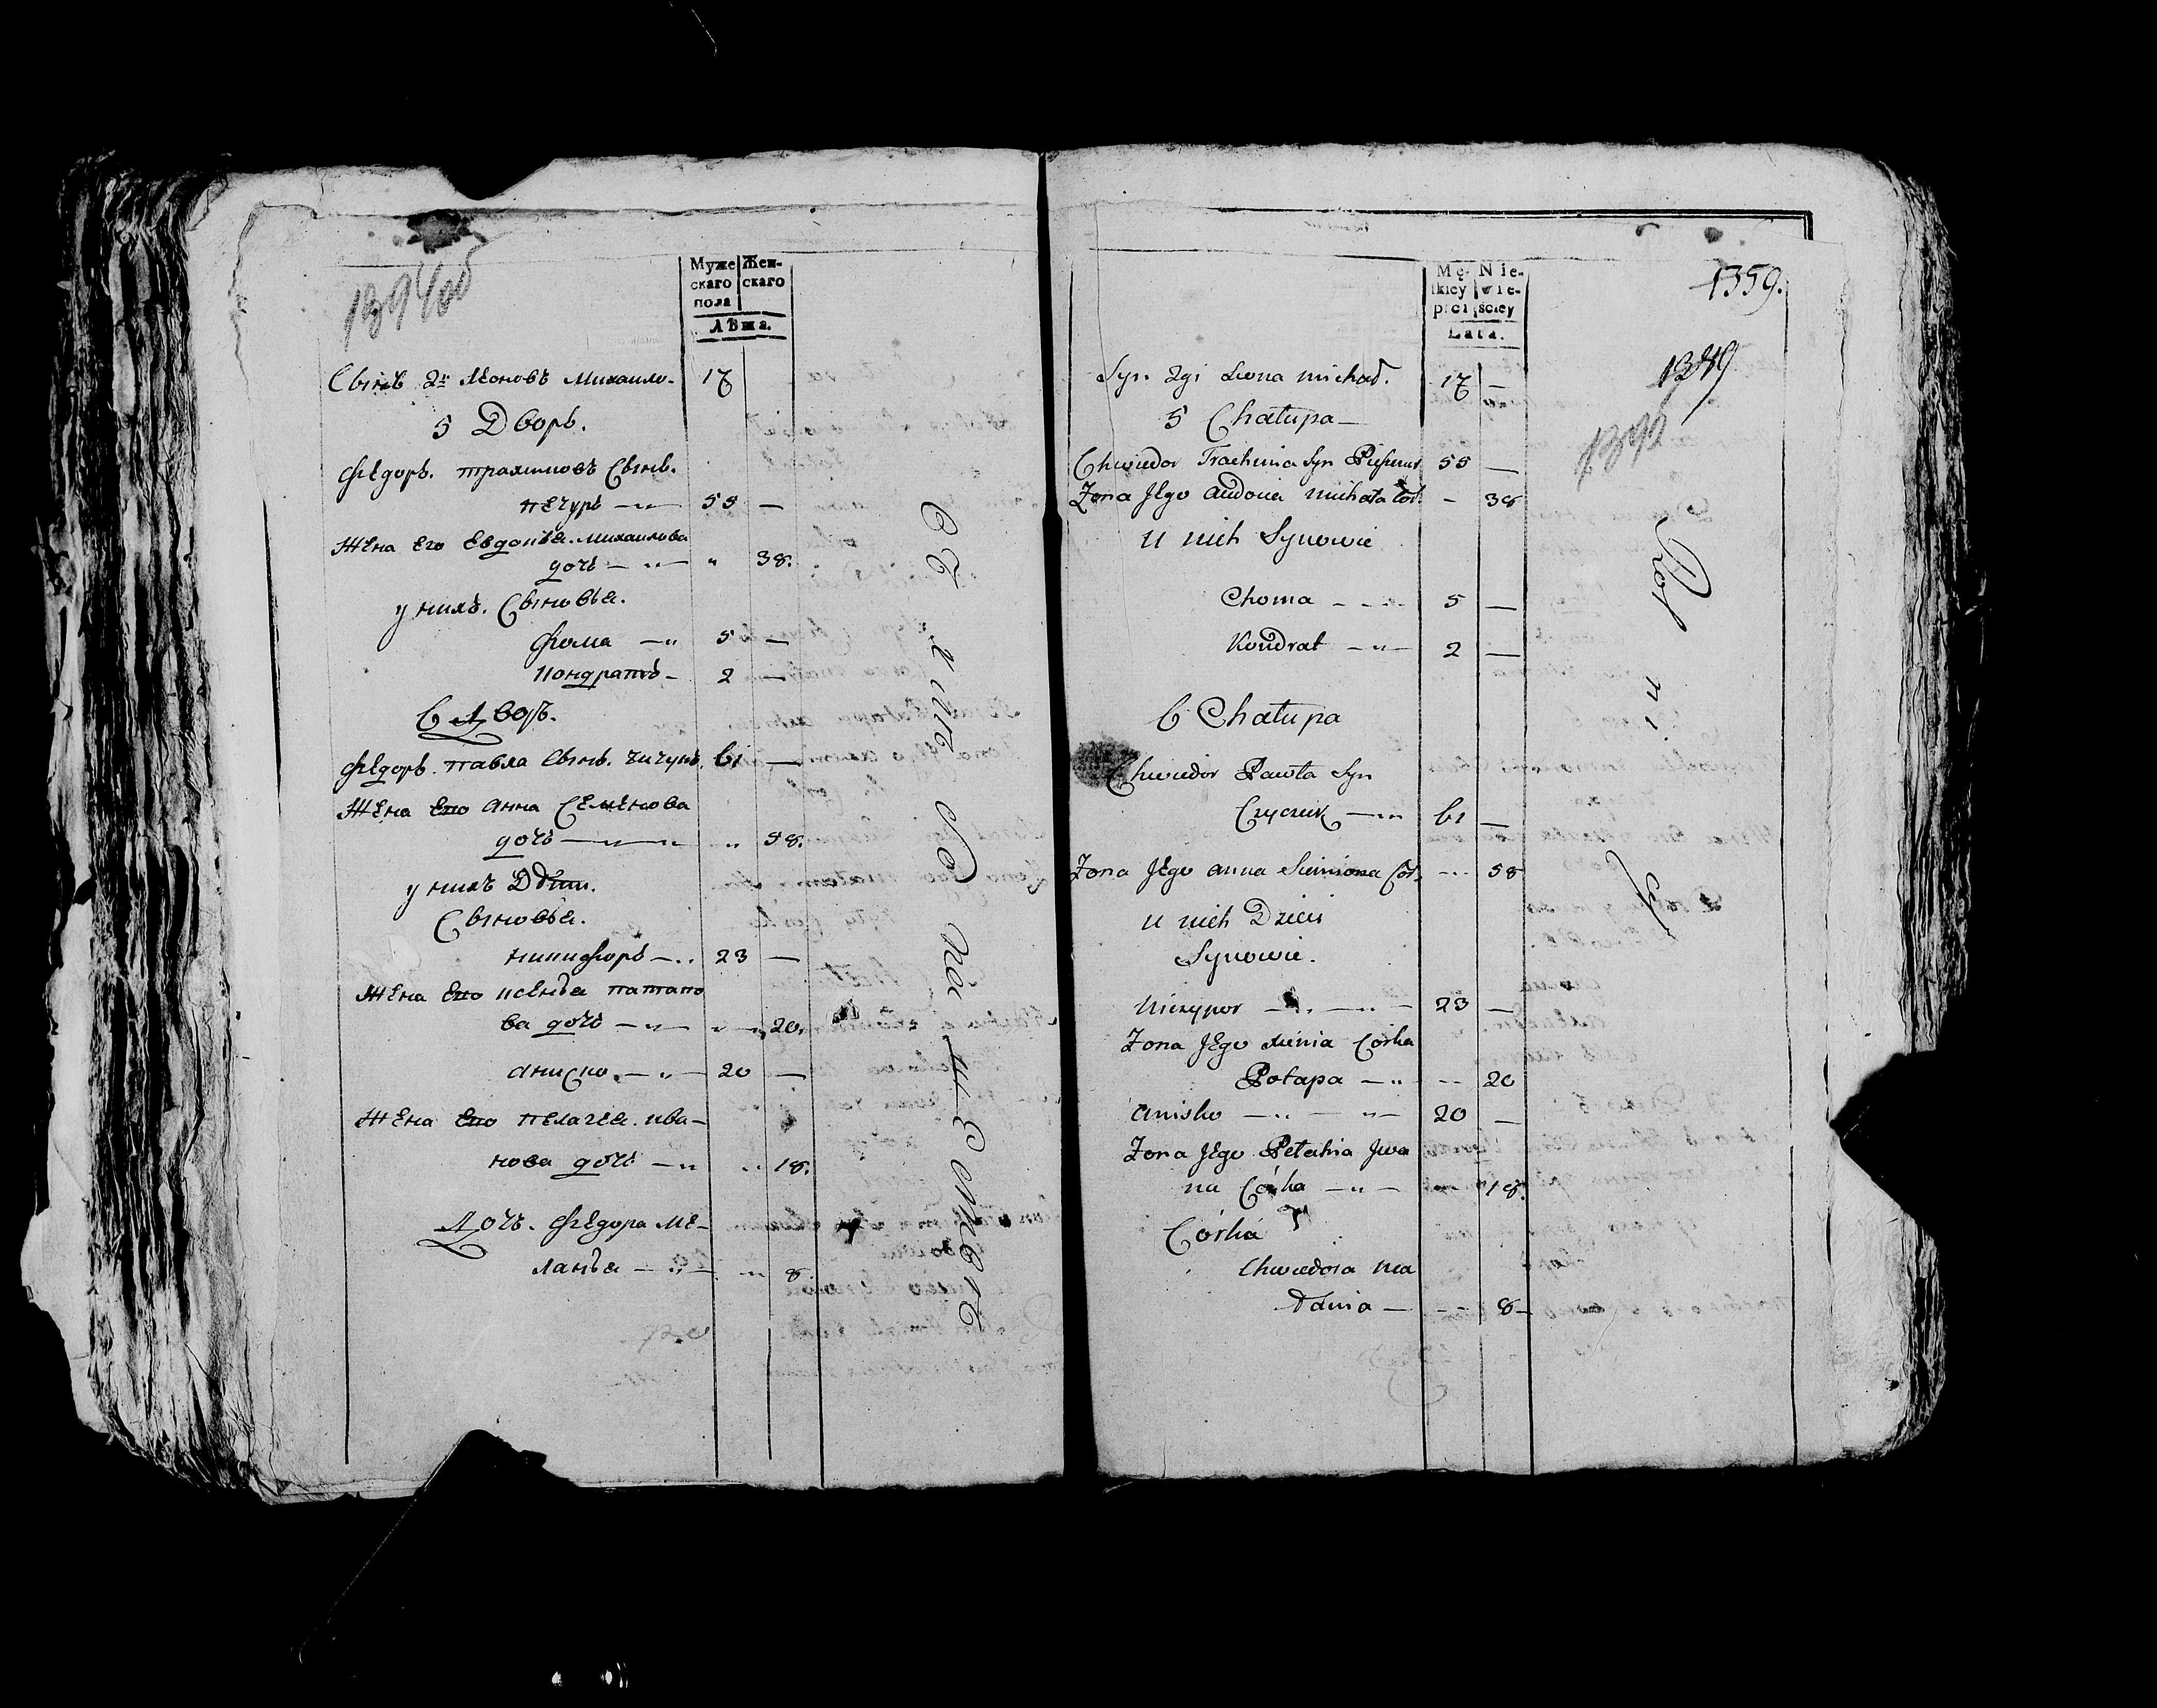 1394об
Муже Жен-
скаго скаго
пола
Лѣта.
Сынъ 2й Леоновъ Михаило- 17
5 Дворъ.
Федоръ. трахимовъ Сынъ.
печуръ — " — 55 —
Жена Его Евдокъя. Михаилова
дочь — " — " 38.
у нихъ. Сыновья.
Фома — " 5 —
Кондратъ — 2 —
6 Дворъ.
Федоръ. павла Сынъ. чичукъ. 61 —
Жена Его Анна Семенова
дочь — " — " " 58.
у нихъ Дѣти.
Сыновья.
никифоръ — .. 23 —
Жена Его ксенъя патапо
ва дочь — " — " — " 20.
аниско. — " — 20 —
Жена Его пелагея. ива-
нова дочь — " " 18.
Дочь. Федора ме-
ланъя — " — " 8.
1359.
1349
1395
Mę- Nie-
skiey wie-
płci ściey
Lata.
Syn 2gi Leona michał. 17 —
5 Chałupa —
Chwiedor Trachima Syn Pieczur 55 —
Żona Jego Audocia michała Cór. - 38
U nich Synowie
Choma - - - 5 —
Kondrat — " — 2 —
6 Chałupa
Chwiedor Pawła Syn
Czyczuk — " 61 —
Żona Jego anna Siemiona Cór. - - - 58
U nich Dzieci
Synowie.
Nicypor — " — " — 23 —
Żona Jego Xienia Córka
Potapa — " - - 20
anisko — " — " — 20 —
Żona Jego Pełahia Jwa
na Córka — " — 18.
Córka
Chwiedora Ma
łania — - - - 8 —
Rolni
cy